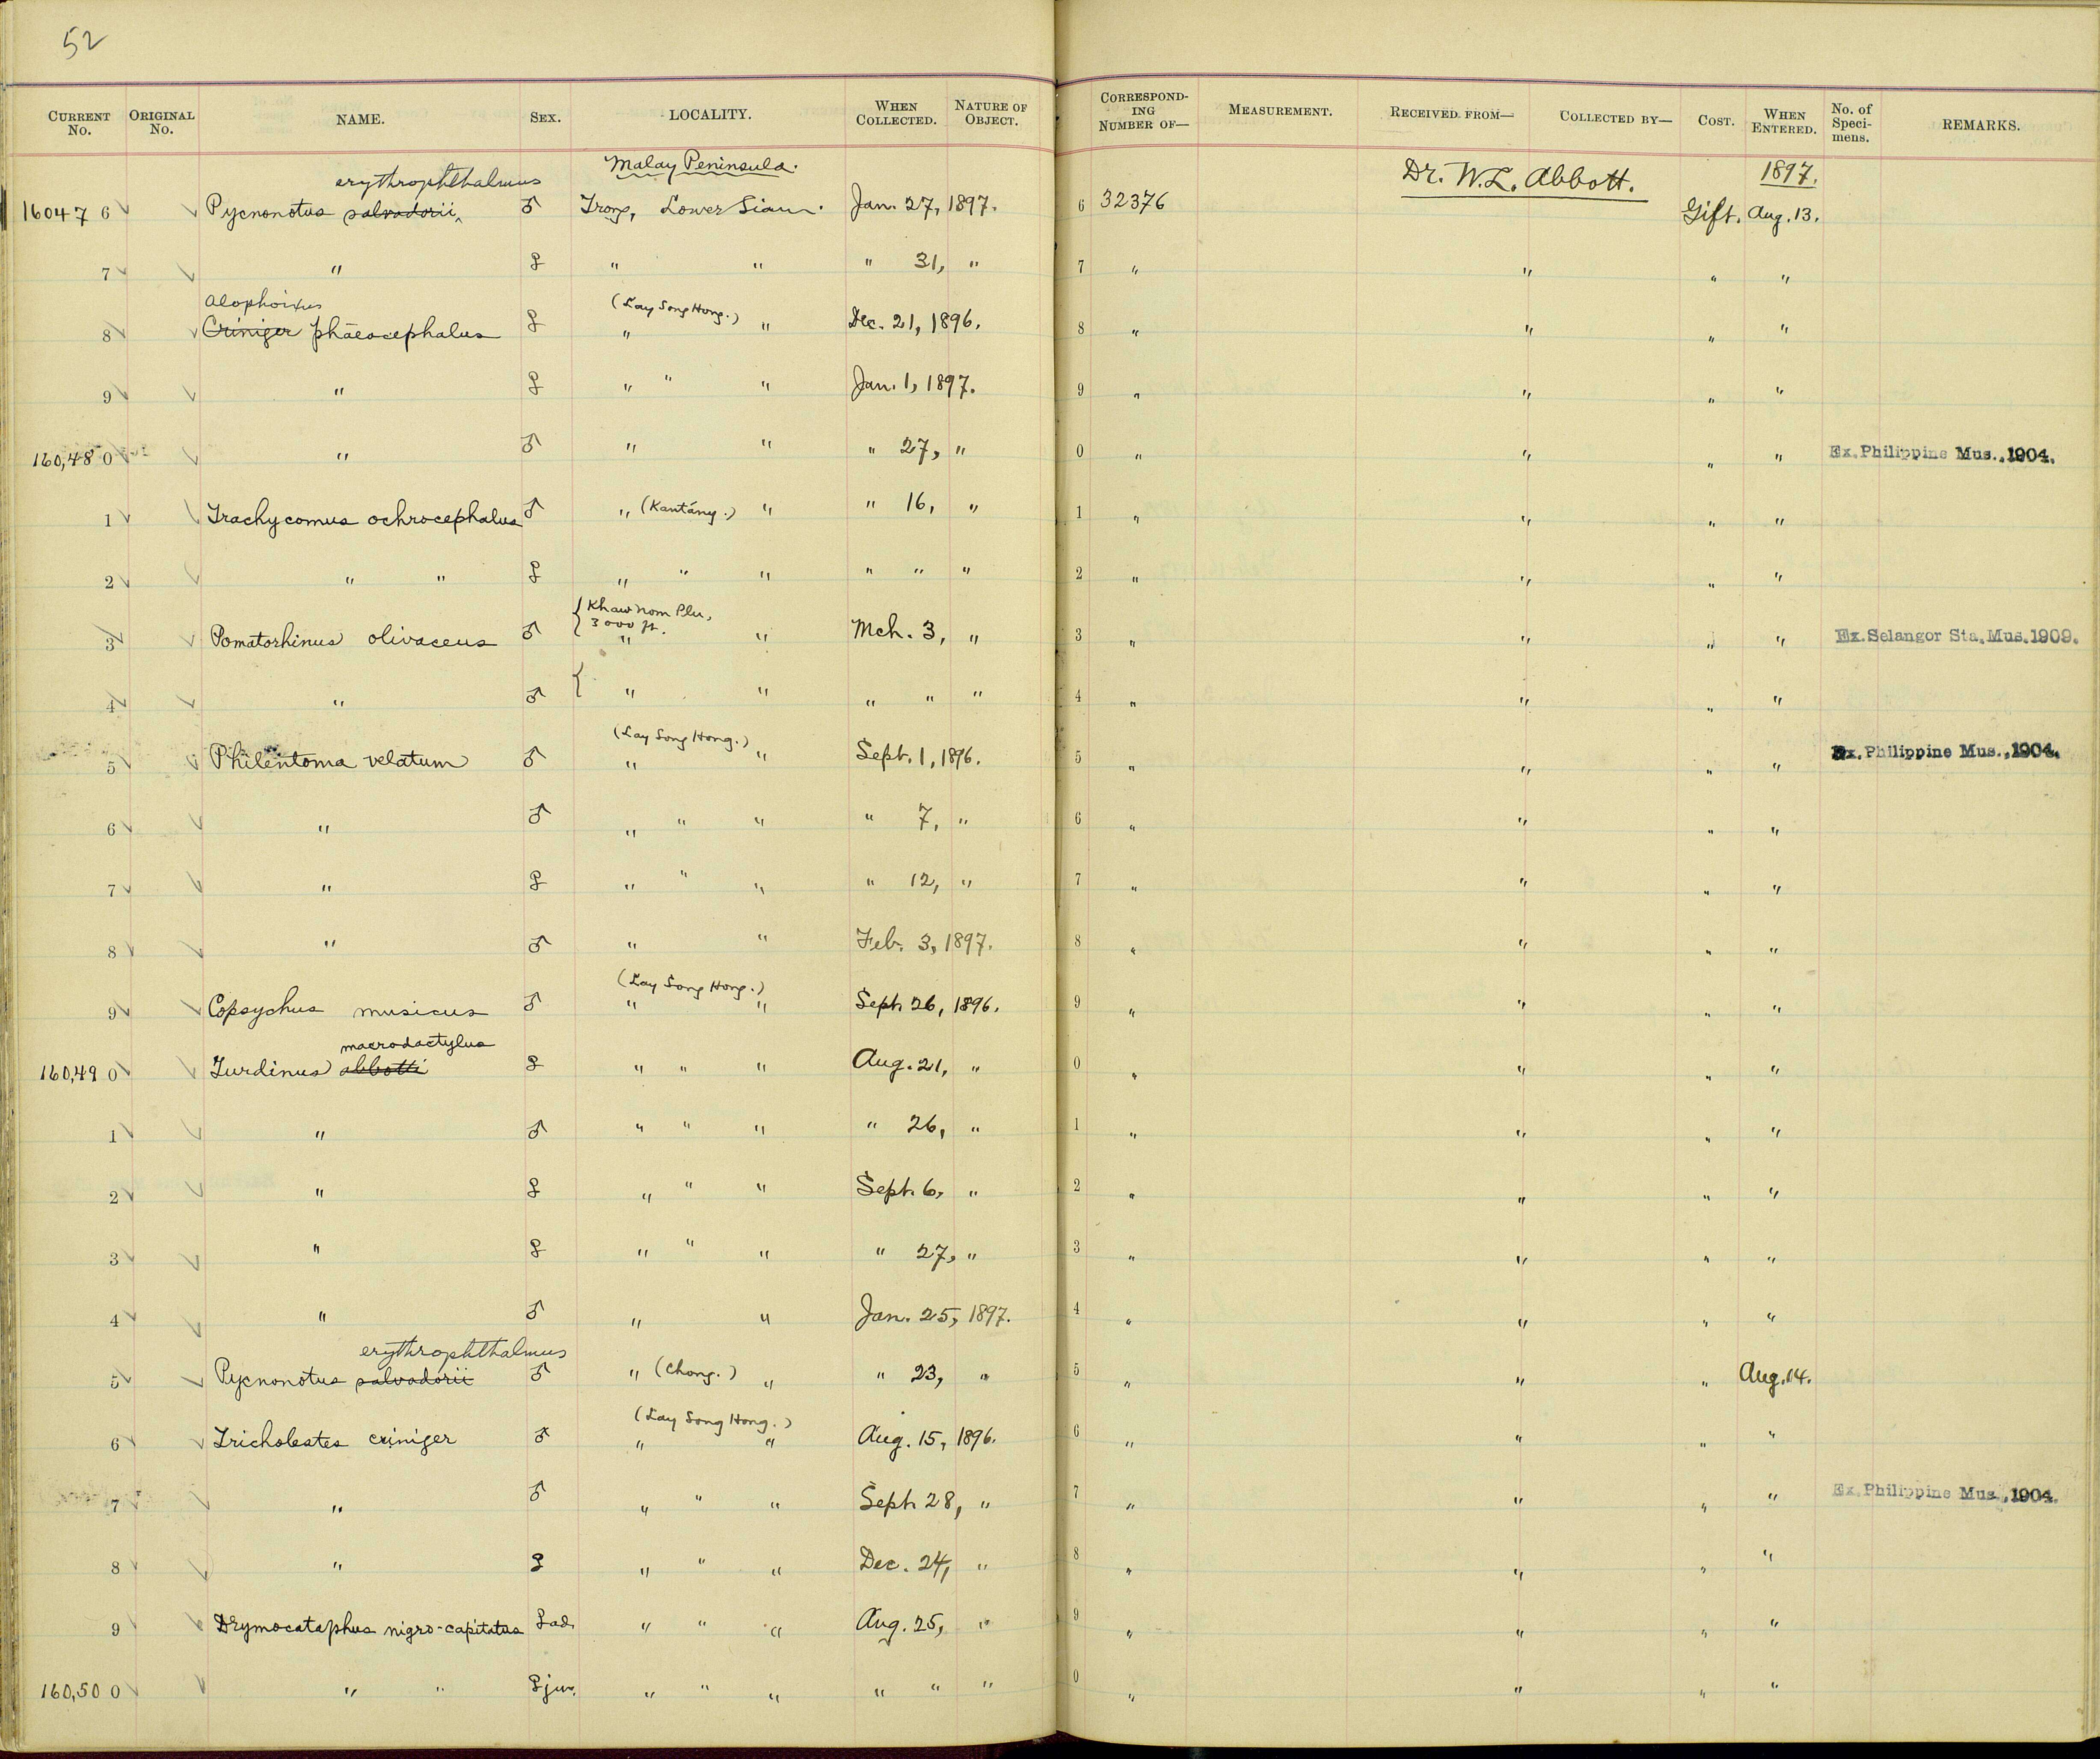 52
CURRENT No. ORIGINAL No. NAME. SEX. LOCALITY. WHEN COLLECTED. NATURE OF OBJECT. CORRESPONDING NUMBER OF— MEASUREMENT. RECEIVED FROM— COLLECTED BY— COST. WHEN ENTERED. No. of Specimens. REMARKS.
Malay Peninsula. Dr. W. L. Abbott. 1897.
erythrophthalmus
160476 Pycnonotus salvadorii ♂ Trong, Lower Siam. Jan. 27, 1897. 6 32376 Gift. Aug. 13.
7 " ♀ " " " 31, " 7 " " " "
Alophoixus (Lay Song Hong.)
8 Criniger phæocephalus ♀ " " Dec. 21, 1896. 8 " " " "
9 " ♀ " " " Jan. 1, 1897. 9 " " " "
160,480 " ♂ " " " 27, " 0 " " " " Ex. Philippine Mus., 1904.
1 Trachycomus ochrocephalus ♂ " (Kantáng.) " " 16, " 1 " " " "
2 " " ♀ " " " " " " 2 " " " "
{ Khaw nom Plu, 3000 ft.
3 Pomatorhinus olivaceus ♂ " " Mch. 3, " 3 " " " " Ex. Selangor Sta. Mus. 1909.
4 " ♂ { " " " " " 4 " " " "
(Lay Song Hong.)
5 Philentoma velatum ♂ " " Sept. 1, 1896. 5 " " " " Ex. Philippine Mus., 1904.
6 " ♂ " " " " 7, " 6 " " " "
7 " ♀ " " " " 12, " 7 " " " "
8 " ♂ " " Feb. 3, 1897. 8 " " " "
(Lay Song Hong.)
9 Copsychus musicus ♂ " " Sept. 26, 1896. 9 " " " "
macrodactylus
160,490 Turdinus abbotti ♀ " " " Aug. 21, " 0 " " " "
1 " ♂ " " " " 26, " 1 " " " "
2 " ♀ " " " Sept. 6, " 2 " " " "
3 " ♀ " " " " 27, " 3 " " " "
4 " ♂ " " Jan. 25, 1897. 4 " " " "
erythrophthalmus
5 Pycnonotus salvadorii ♂ " (Chong.) " " 23, " 5 " " " Aug. 14.
(Lay Song Hong.)
6 Tricholestes criniger ♂ " " Aug. 15, 1896. 6 " " " "
7 " ♂ " " " Sept. 28, " 7 " " " " Ex. Philippine Mus., 1904.
8 " ♀ " " " Dec. 24, " 8 " " " "
9 Drymocataphus nigro-capitatus ♀ad. " " " Aug. 25, " 9 " " " "
160,500 " " ♀juv. " " " " " " 0 " " " "